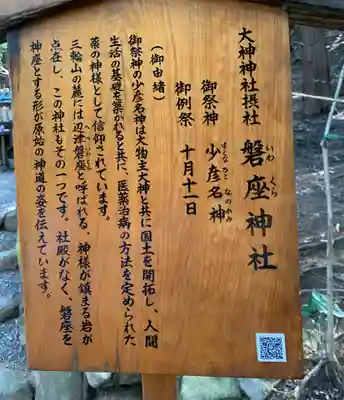 大神神社摂社
磐座神社
いわくら
御祭神 少彦名神
すくなひこなのかみ
御例祭 十月十一日
（御由緒）
御祭神の少彦名神は大物主大神と共に国土を開拓し、人間
生活の基礎を築かれると共に、医薬治病の方法を定められた
薬の神様として信仰されています。
三輪山の麓には辺津磐座と呼ばれる、神様が鎮まる岩が
へついわくら
点在し、この神社もその一つです。社殿がなく、磐座を
神座とする形が原始の神道の姿を伝えています。